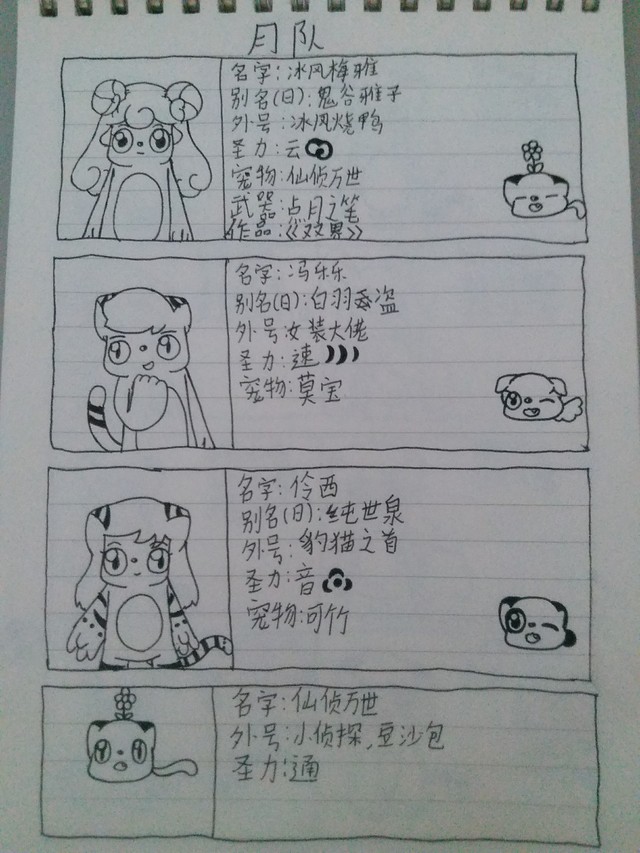 月队
名字:冰风梅雅
别名(日):鬼谷雅子
外号:冰风烧鸭
圣力:云
宠物:仙侦万世
武器:点月之笔
作品:《双界》
名字:冯乐乐
别名(日):白羽盗
外号女装大佬
圣力:速
宠物:莫宝
名字:伶西
别名(日):纯世泉
外号:豹猫之首
圣力:音
宠物:可竹
名字:仙侦万世
外号:小侦探,豆沙包
圣力:通